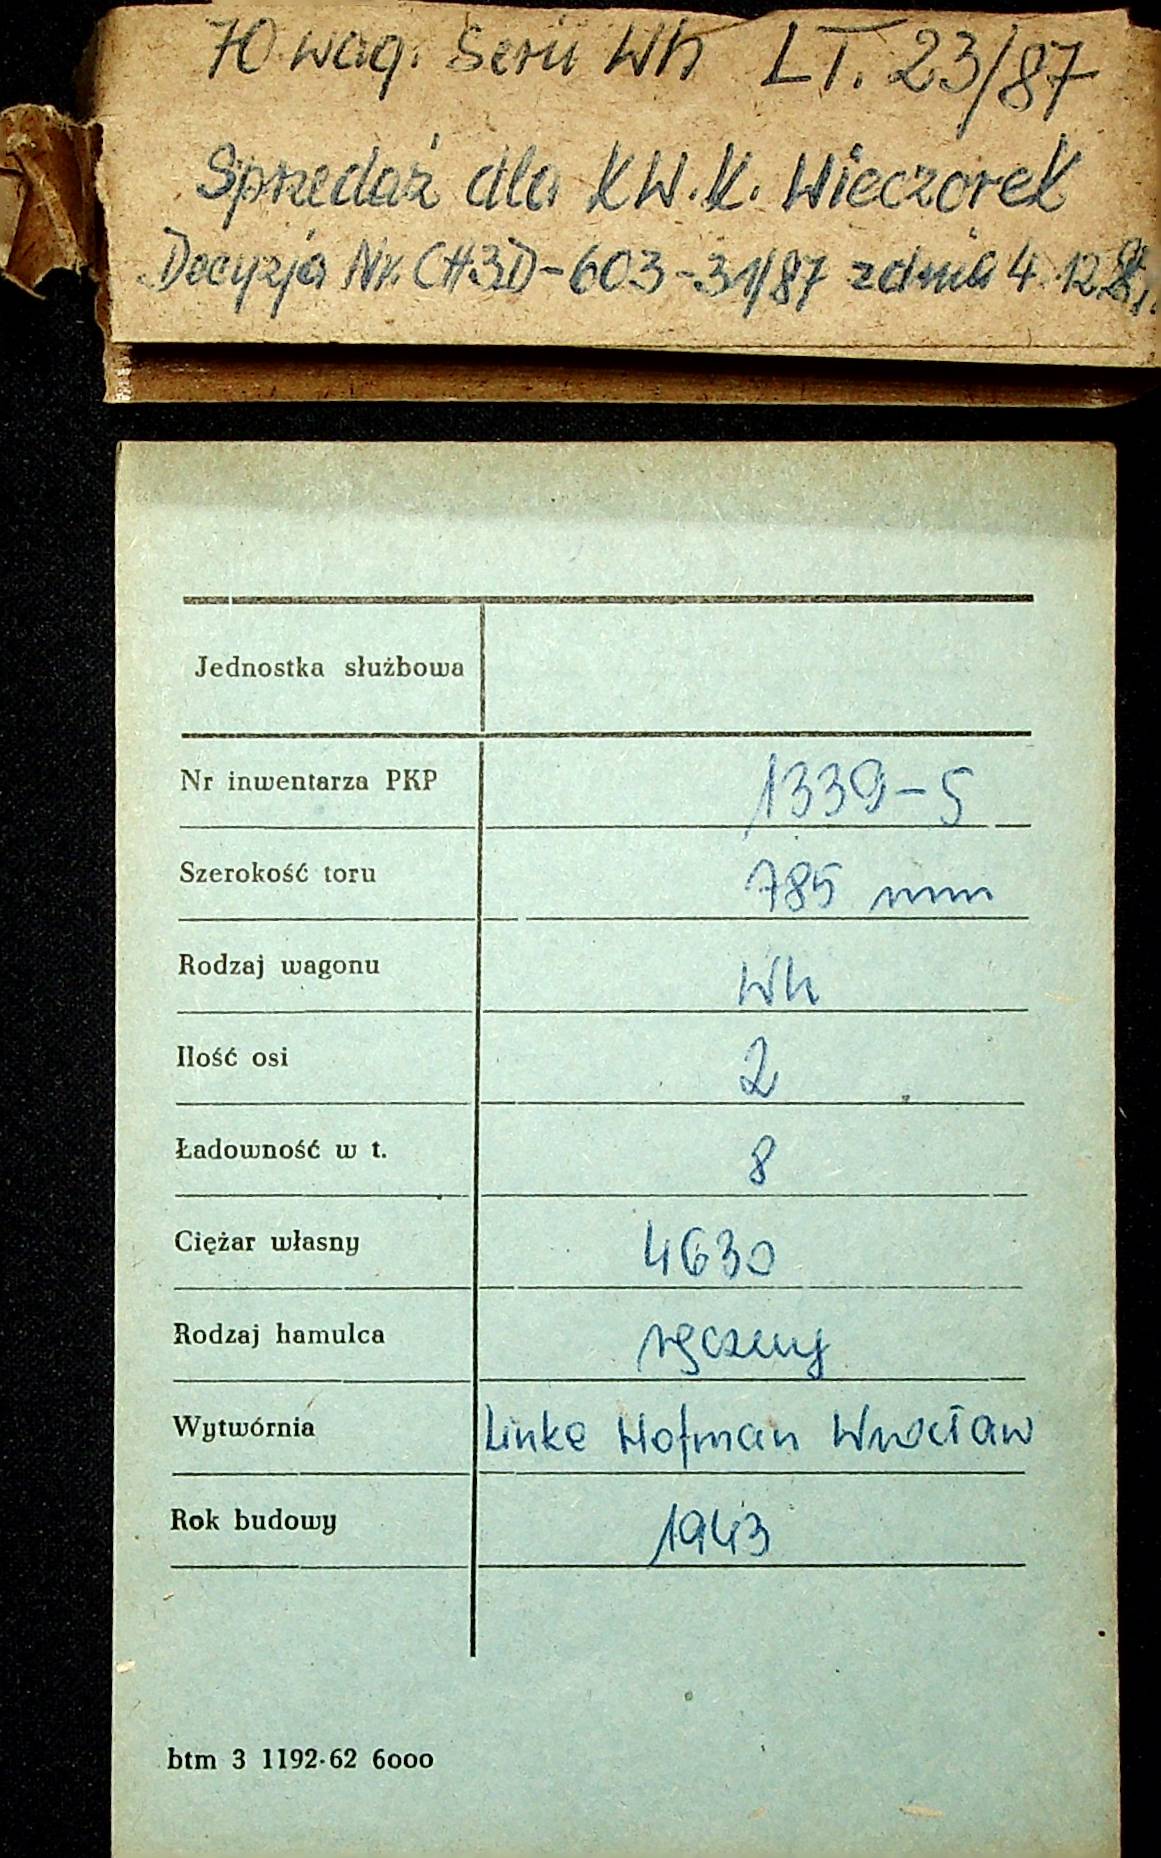 70 wag. Serii Wh LT. 23/87
Sprzedaż dla KW.K. Wieczorek
Decyzja Nr. CH3D-603-31/87 z dnia 4.12.
Jednostka służbowa
Nr inwentarza PKP 1339-5
Szerokość toru 785 mm
Rodzaj wagonu Wh
Ilość osi 2
Ładowność w t. 8
Ciężar własny 4630
Rodzaj hamulca ręczny
Wytwórnia Linke Hofman Wrocław
Rok budowy 1943
btm 3 1192-62 6000